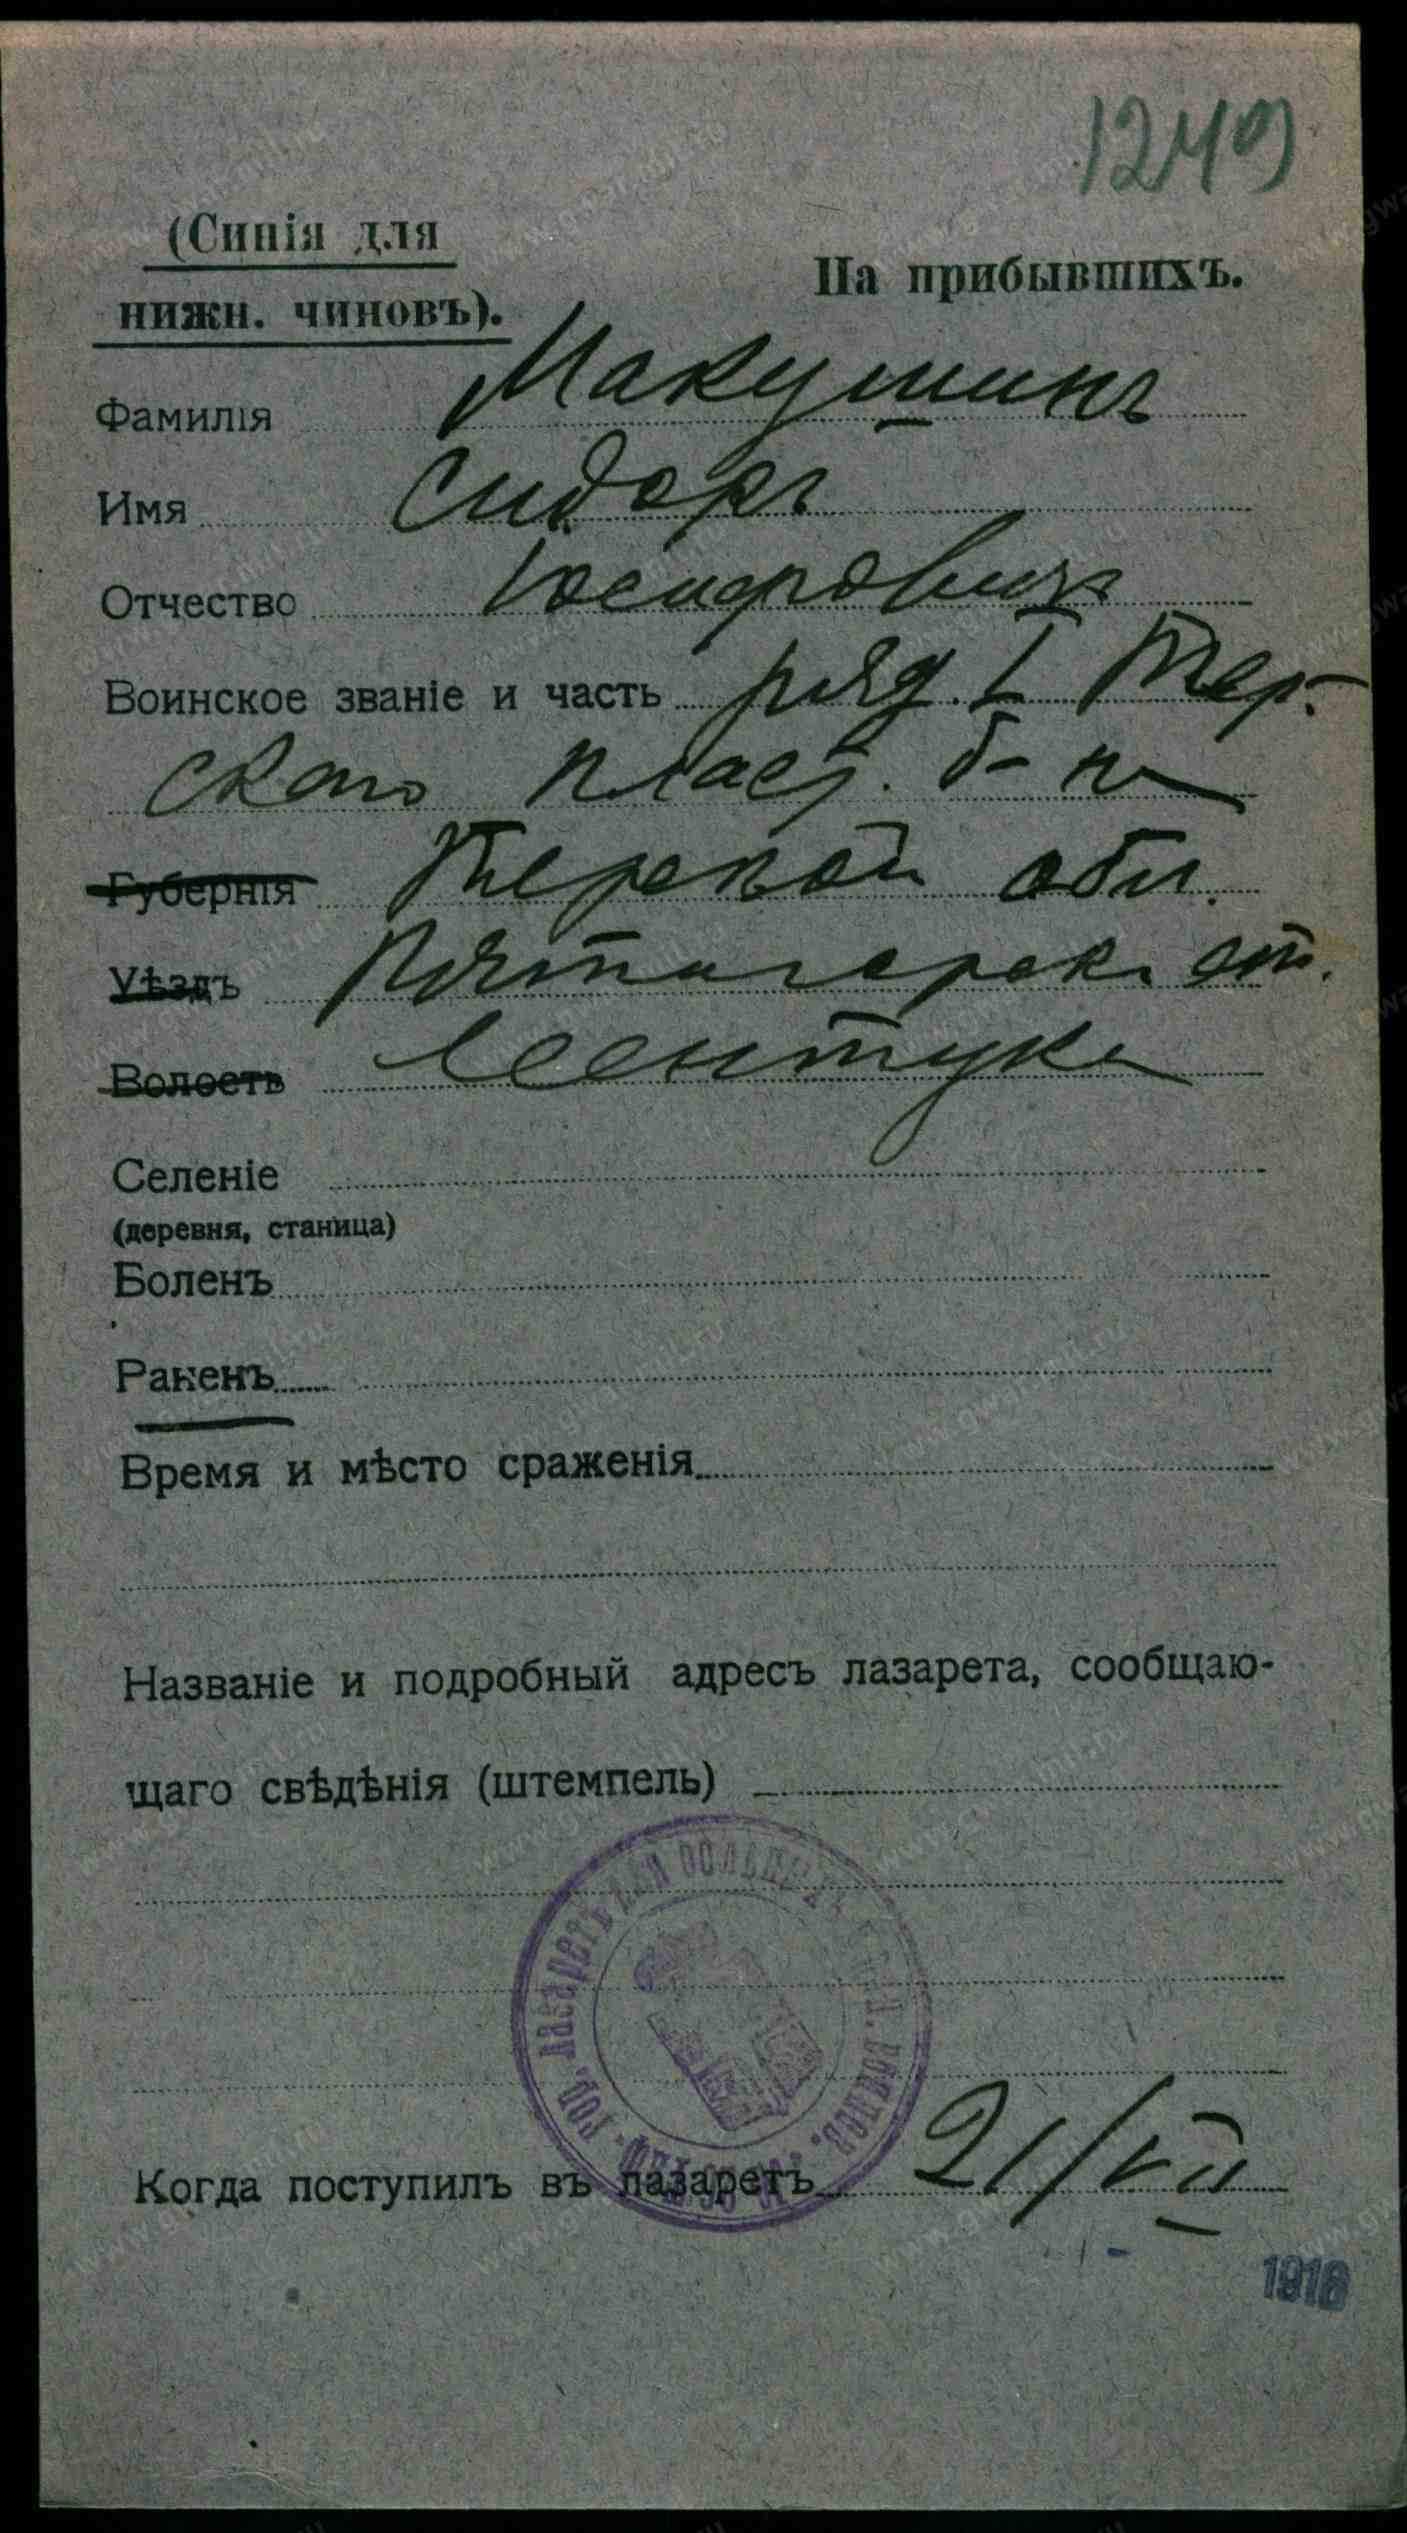 1249
(Синія для
нижн. чиновъ).
На прибывшихъ.
Фамилія Макушинъ
Имя Сидоръ
Отчество Іосифовичъ
Воинское званіе и часть ряд. I Тер-
скаго пласт. б-на
Губернія Терской обл.
Уѣздъ Пятигорск. от.
Волость Ессентуки
Селеніе
(деревня, станица)
Боленъ
Раненъ
Время и мѣсто сраженія
Названіе и подробный адресъ лазарета, сообщаю-
щаго свѣдѣнія (штемпель)
гор. лазаретъ для больныхъ воиновъ.
Когда поступилъ въ лазаретъ 21/VII
1916